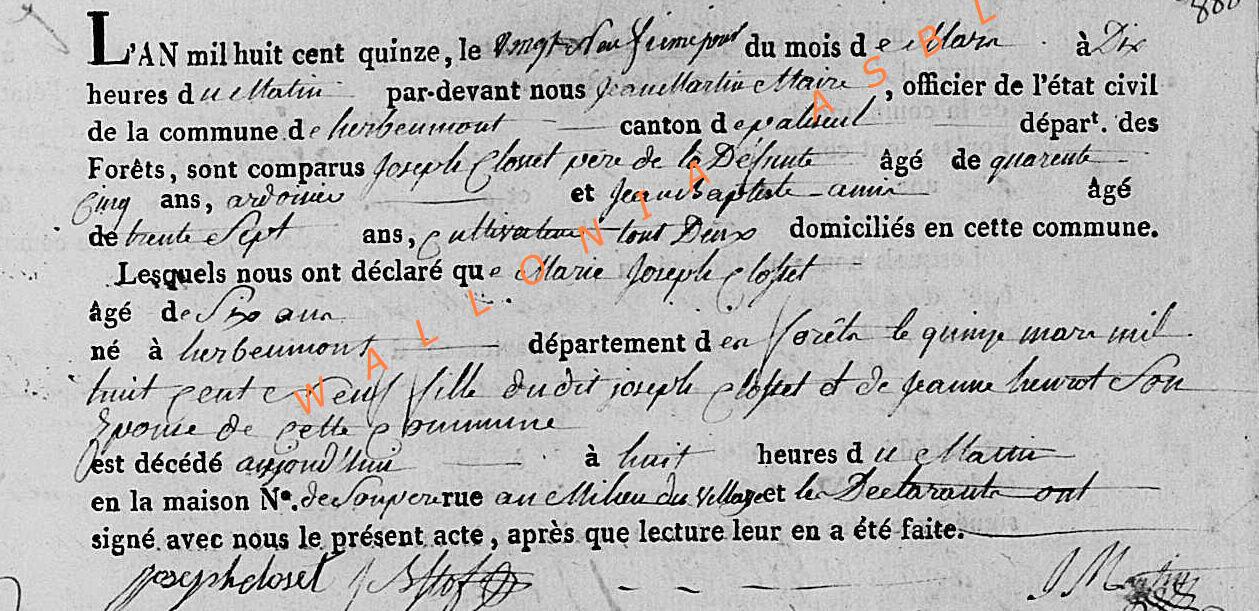 L'AN mil huit cent quinze, le Vingt deuxieme jour du mois de Mars à Dix
heures du Matin par-devant nous Jean Martin Maire, officier de l'état civil
de la commune de herbeumont canton de paliseul départ. des
Forêts, sont comparus Joseph Closset père de la Défunte âgé de quarente
Cinq ans, ardoisier et Jean Baptiste âgé
de trente Sept ans, Cultivateur tout Deux domiciliés en cette commune.
Lesquels nous ont déclaré que Marie Joseph Closset
âgé de Six ans
né à herbeumont département des forêts le quinze mars mil
huit cent Neuf fille du dit joseph Closset et de jeanne henrot Son
Epouse de cette Commune
est décédé aujourd'hui à huit heures du Matin
en la maison N°. de rue au Milieu du village et les Declarants ont
signé avec nous le présent acte, après que lecture leur en a été faite.
josephcloset J Martin
WALLONIA ASBL